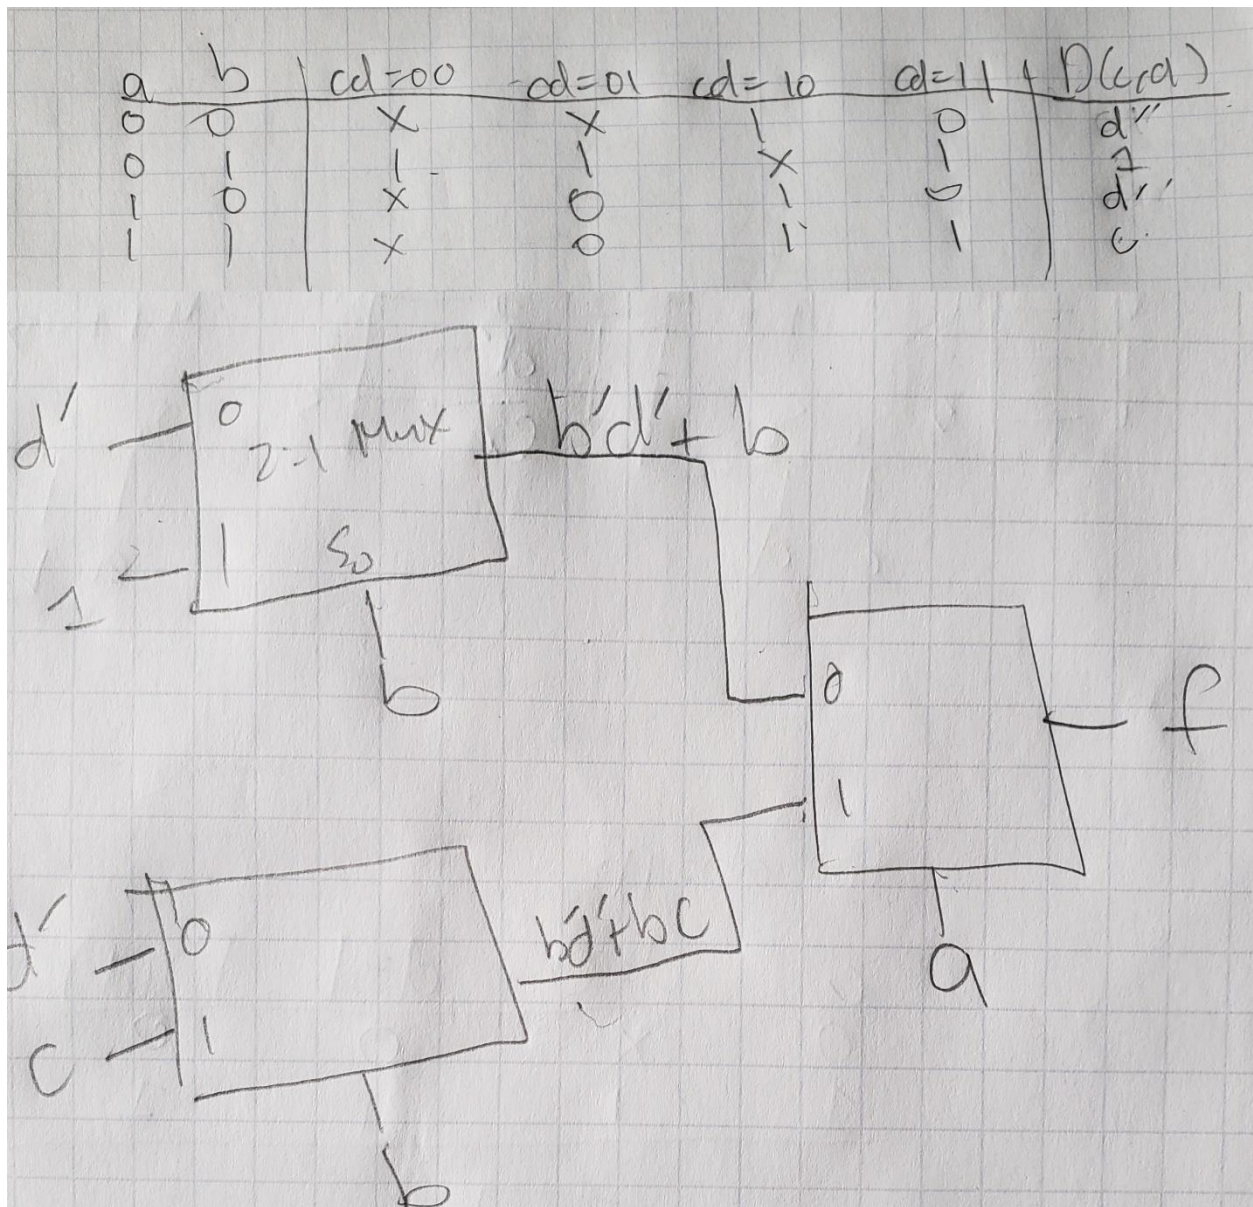 a b cd=00 cd=01 cd=10 cd=11 D(c,d)
0 0 X X 1 0 d'
0 1 1 1 X 1 1
1 0 X 0 1 0 d'
1 1 X 0 1 1 c
d' 0 2-1 Mux b'd'+b
1 1 S0
b
0 f
1
d' 0 b'd'+bc
a
c 1
b